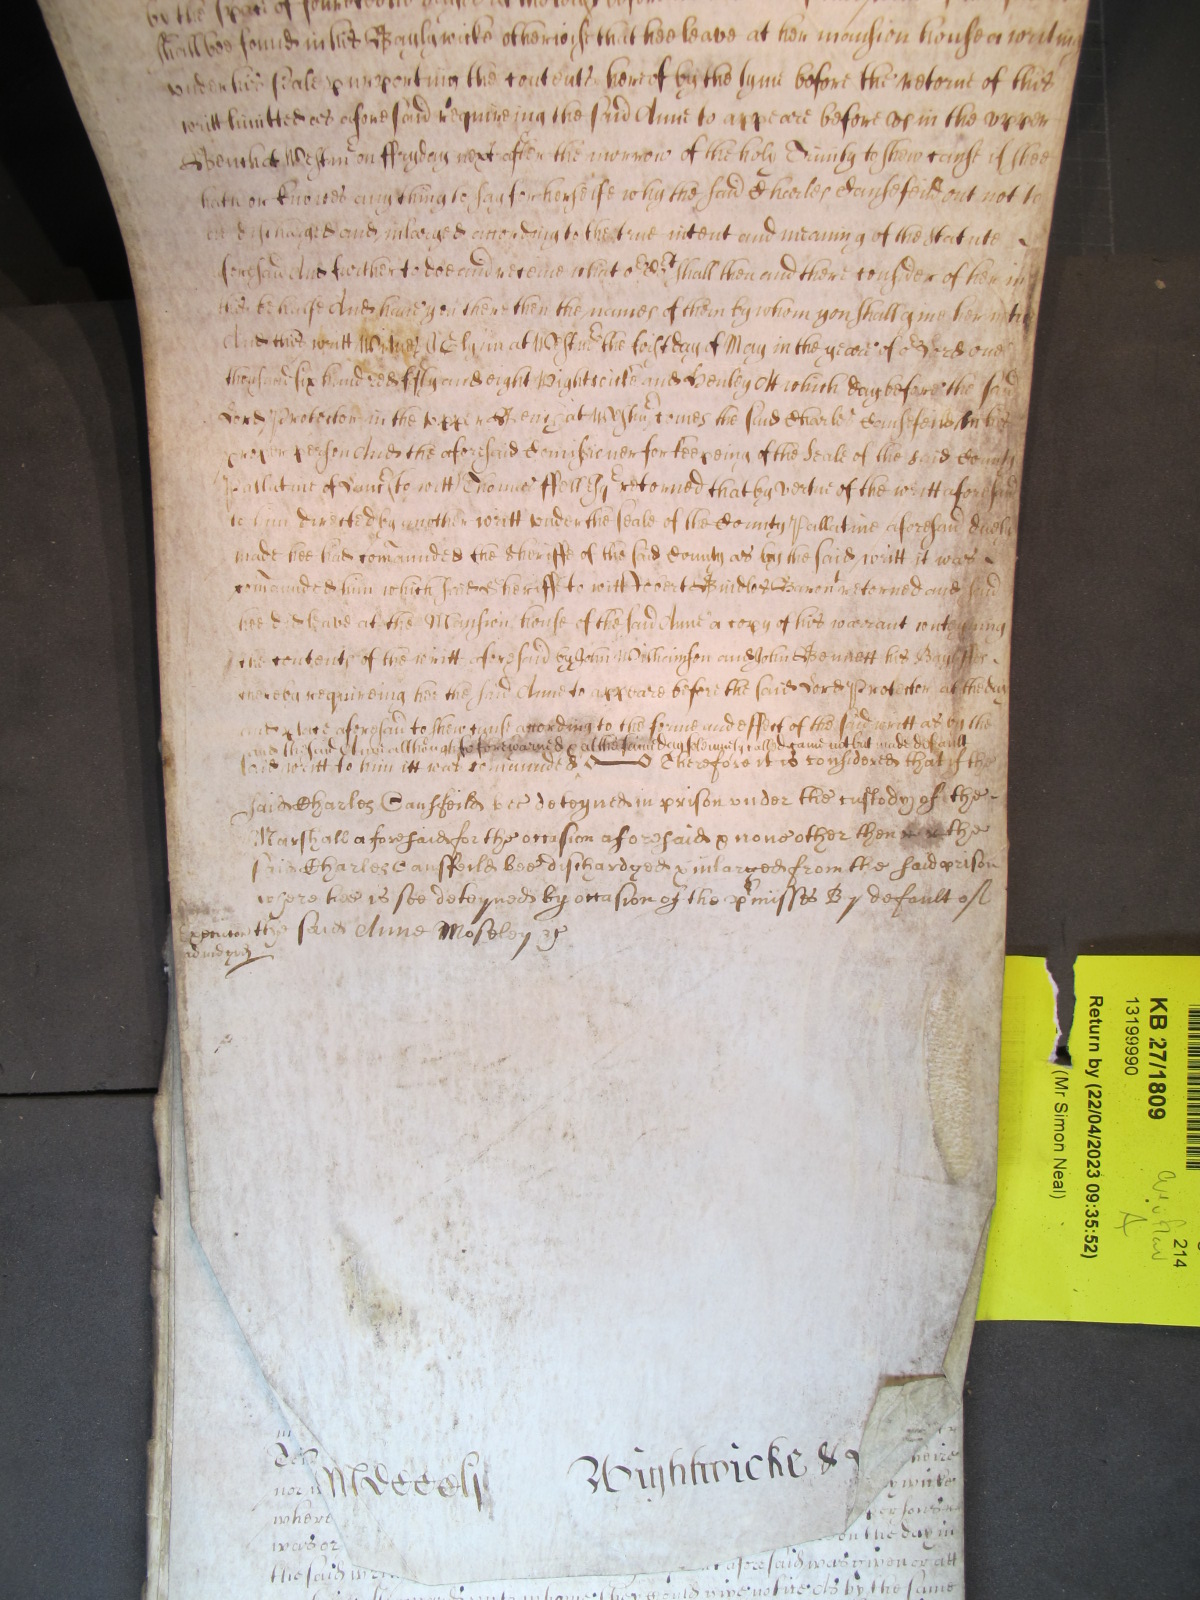 by the space of fourteene dayes at the least before
shall bee found in his Baylywicke otherwise that hee leave at her mansion house a writing
under his seale purporting the contents hereof by the tyme before the retorne of this
writt limitted as aforesaid requireing the said Anne to appeare before us in the upper
Bench at Westmr on ffryday next after the morrow of the holy Trinity to shew cause if shee
hath or knowes any thing to say for herselfe why the said Charles Cansfeild out not to
be discharged and inlarged according to the true intent and meaning of the Statute
foresaid And further to doe and receive what or Cort shall then and there consider of her in
this behalfe And have you there then the names of them by whom you shall give her notice
And this writt Witnes J Glynn at Westmr the first day of May in the yeare of or Lord one
thousand six hundred fifty and eight Wightwicke and Henley Att which day before the said
Lord Protector in the upper Bench at Westmr comes the said Charles Cansfeild in his
proper person And the aforesaid Comissioner for keepeing of the Seale of the said County
Pallatine of Lancr to witt Thomas ffell Esq retorned that by vertue of the writt aforesaid
to him directed by another writt under the seale of the County Pallatine aforesaid duely
made hee had comaunded the Sheriffe of the said County as by the said writt it was
comaunded him which said Sheriffe to witt Robert Bindlos Baront retorned and said
hee did leave at the Mansion house of the said Anne a copy of his warrant conteyning
the contents of the writt aforesaid by John Williamson and John Bennett his Bayliffes
thereby requireing her the said Anne to appeare before the said Lord Protector at the day
and place aforesaid to shew cause according to the forme and effect of the said writt as by the
and the said Anne although soe forewarned & at the same day solemnely called came not but made default
said writt to him itt was comaunded Therefore it is considered that if the
said Charles Cansfeild bee deteyned in prison under the custody of the
Marshall aforesaid for the occasion aforesaid & none other then the
said Charles Cansfeild bee dischardged & inlarged from the said prison
where hee is soe deteyned by occasion of the pmisses By default of
the said Anne Moseley &c
Mccccly Wightwicke &
in
nor
where
was or
the said
on the day in
aforesaid was given
by the same
KB 27/1809
13199990
Return by (22/04/2023 09:35:52)
(Mr Simon Neal)
214
A